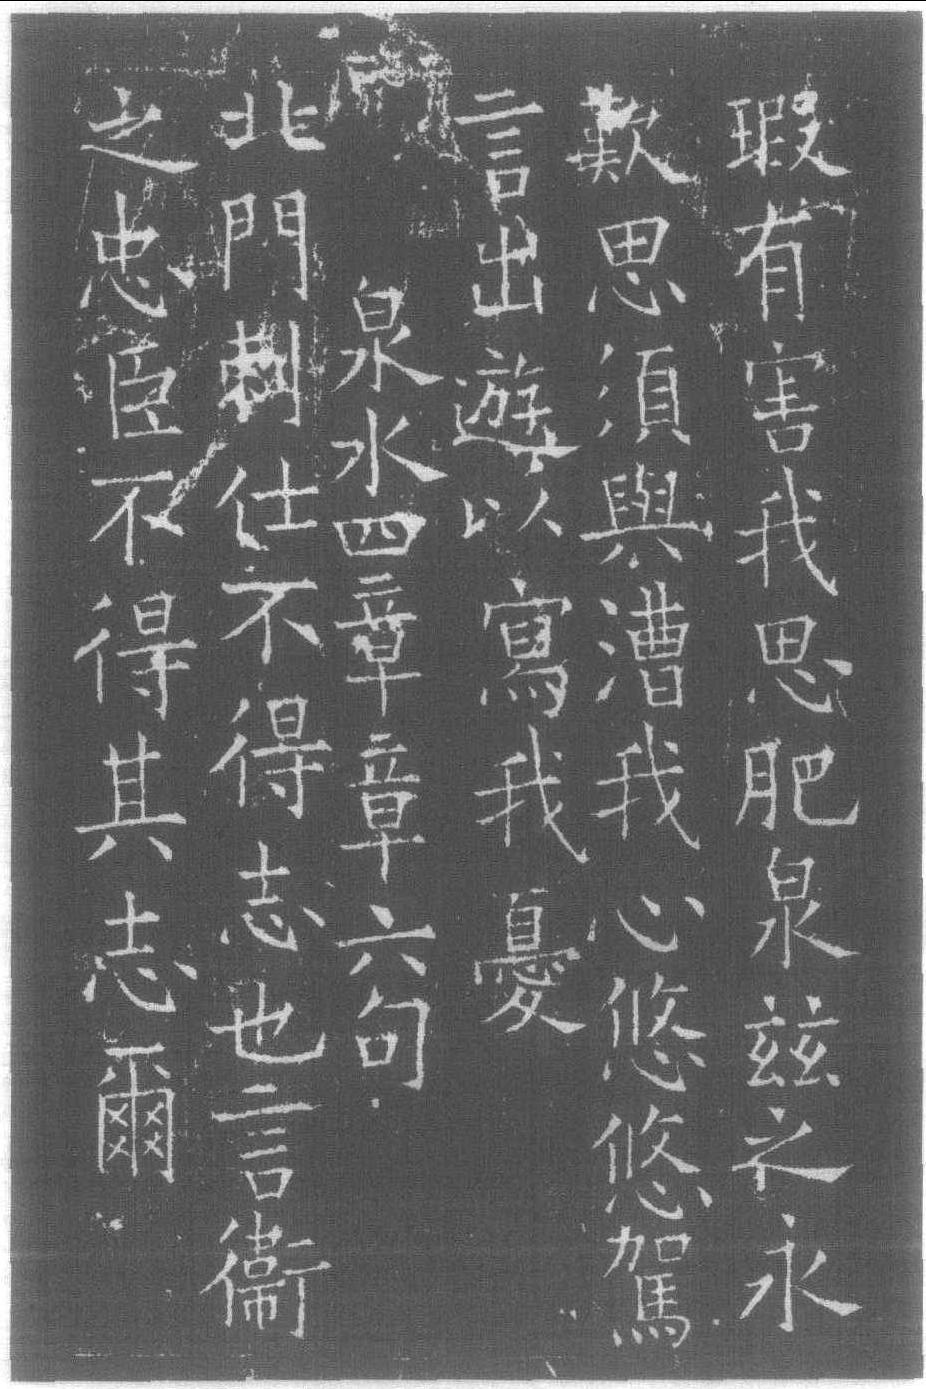 瑕有害我思肥泉茲之永
歎思須與漕我心悠悠駕
言出遊以寫我憂
泉水四章章六句
北門刺仕不得志也言衞
之忠臣不得其志爾